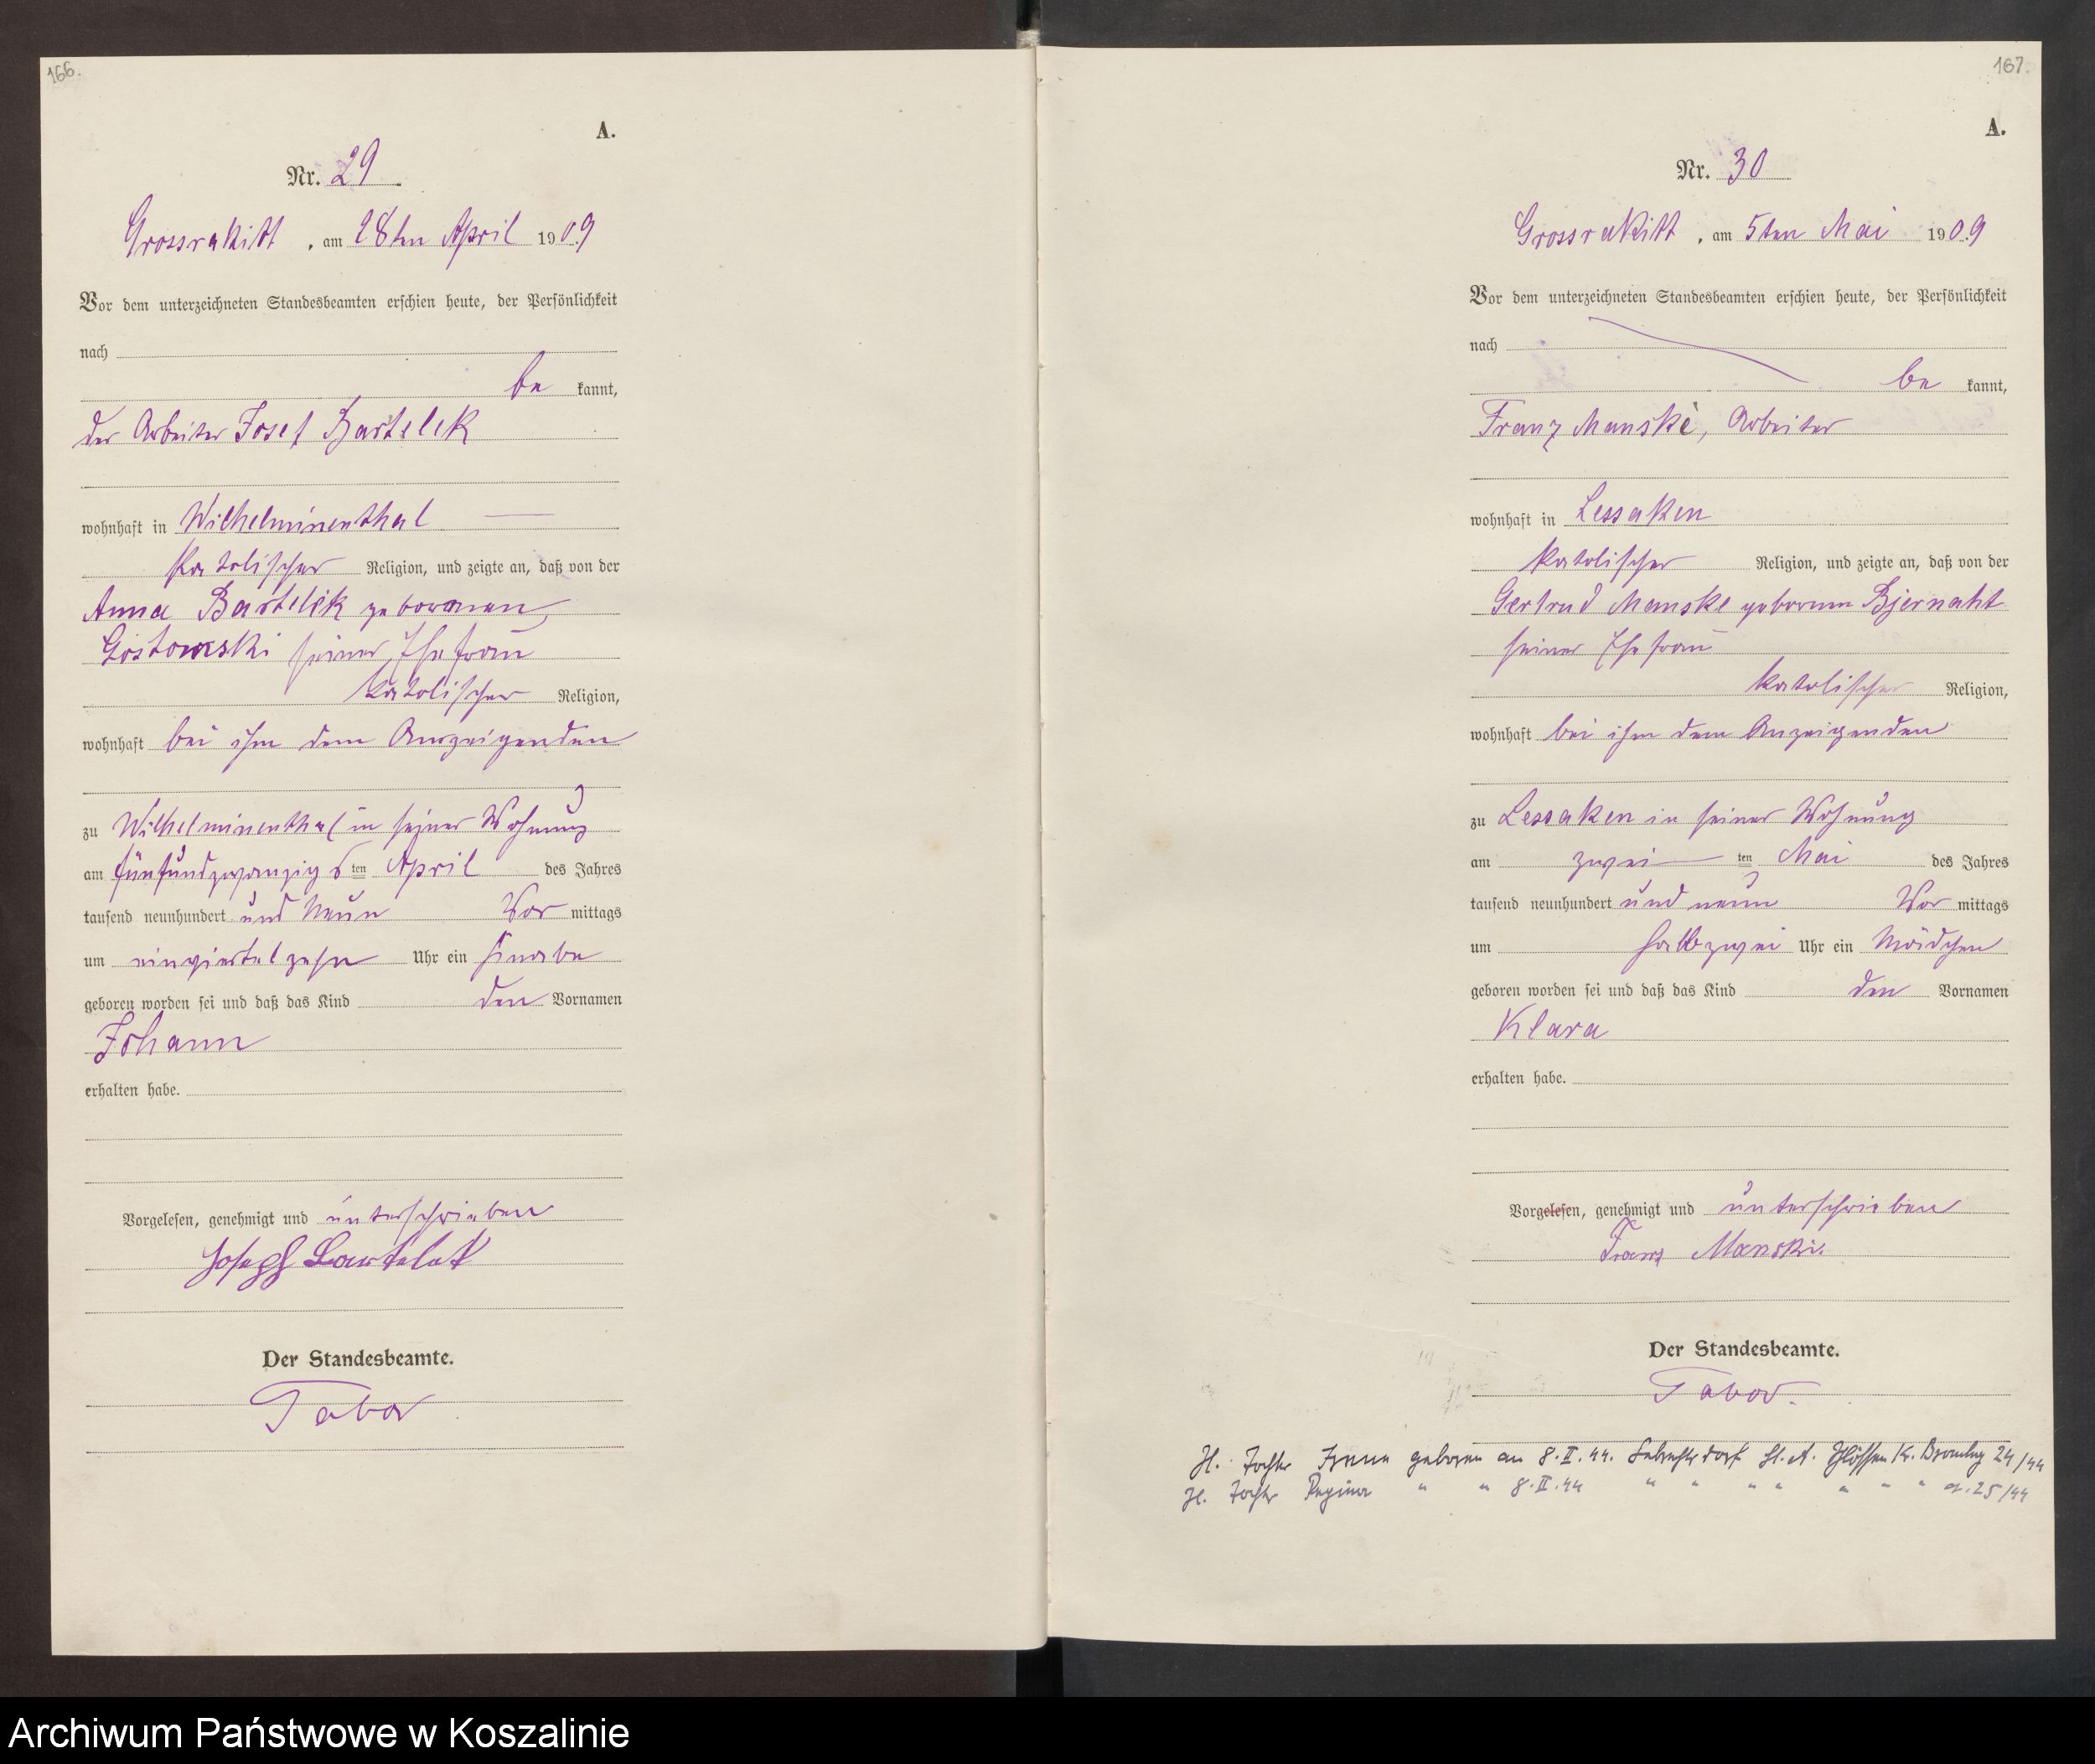 166.
A.
Nr. 29
Grossrakitt, am 28ten April 1909
Vor dem unterzeichneten Standesbeamten erschien heute, der Persönlichkeit
nach
be kannt,
der Arbeiter Josef Bartelek
wohnhaft in Wilhelminenthal
katolischer Religion, und zeigte an, daß von der
Anna Bartelek geborenen
Gostomski seiner Ehefrau
katolischer Religion,
wohnhaft bei ihm dem Anzeigenden
zu Wilhelminenthal in seiner Wohnung
am fünfundzwanzigsten April des Jahres
tausend neunhundert und neun Vor mittags
um einviertelzehn Uhr ein Knabe
geboren worden sei und daß das Kind den Vornamen
Johann
erhalten habe.
Vorgelesen, genehmigt und unterschrieben
Joseph Bartelek
Der Standesbeamte.
Tabor
167.
A.
Nr. 30
Grossrakitt, am 5ten Mai 1909
Vor dem unterzeichneten Standesbeamten erschien heute, der Persönlichkeit
nach
be kannt,
Franz Manske, Arbeiter
wohnhaft in Lessaken
katolischer Religion, und zeigte an, daß von der
Gertrud Manske geborenen Bjernaht
seiner Ehefrau
katolischer Religion,
wohnhaft bei ihm dem Anzeigenden
zu Lessaken in seiner Wohnung
am zwei ten Mai des Jahres
tausend neunhundert und neun Vor mittags
um halbzwei Uhr ein Mädchen
geboren worden sei und daß das Kind den Vornamen
Klara
erhalten habe.
Vorgelesen, genehmigt und unterschrieben
Franz Manski.
Der Standesbeamte.
Tabor.
Tochter geboren am 8.II.44. St.A. Kr. Bromberg 24/44
Tochter Regina " " 8.II.44 " " " " " " " 25/44
Archiwum Państwowe w Koszalinie